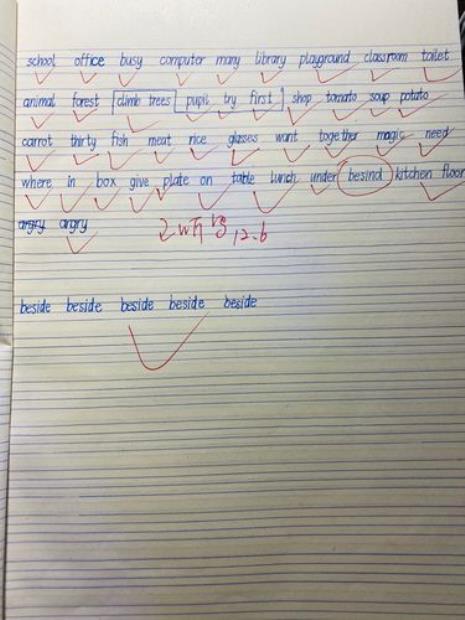 school office busy computer many library playground classroom toilet
animal forest climb trees pupil try first shop tomato soup potato
carrot thirty fish meat rice glasses want together magic need
where in box give plate on table lunch under besind kitchen floor
angry angry
听写 12.6
beside beside beside beside beside